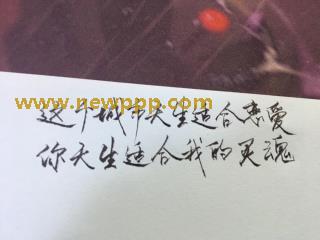 www.newppp.com
这个城市天生适合恋爱
你天生适合我的灵魂